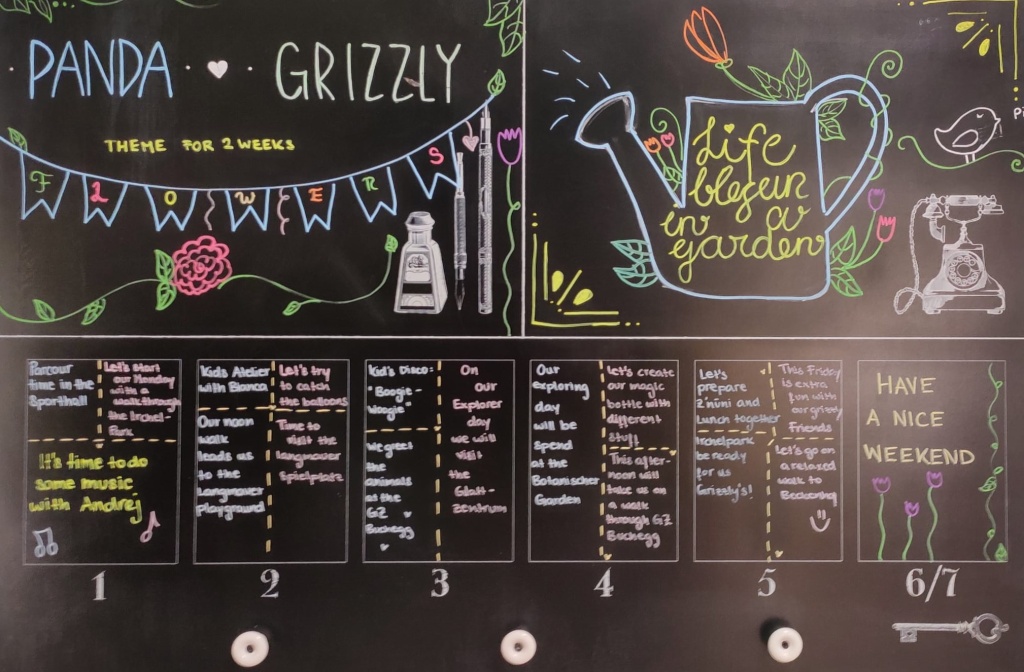 PANDA · ♥ · GRIZZLY
THEME FOR 2 WEEKS
FLOWERS
Life
began
in a
garden
Parcour
time in the
Sporthall
Let's start
our Monday
with a
walkthrough
the Irchel-
Park
It's time to do
some music
with Andrej
1
Kids Atelier
with Bianca
Our noon
walk
leads us
to the
Langmauer
playground
Let's try
to catch
the balloons
Time to
visit the
Langmauer
Spielplatz
2
Kid's Disco:
"Boogie-
Woogie"
We greet
the
animals
at the
GZ
Buchegg
On
our
Explorer
day
we will
visit
the
Glatt-
zentrum
3
Our
exploring
day
will be
spend
at the
Botanischer
Garden
Let's create
our magic
bottle with
different
stuff
This after-
noon will
take us on
a walk
through GZ
Buchegg
4
Let's
prepare
Z'nüni and
Lunch together
Irchelpark
be ready
for us
Grizzly's!
This Friday
is extra
fun with
our grizzly
Friends
Let's go on
a relaxed
walk to
5
HAVE
A NICE
WEEKEND
6/7